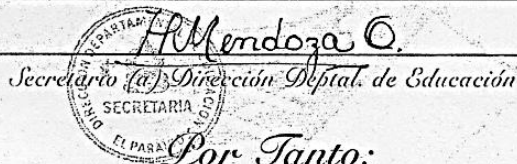 A Mendoza O.
Secretario (a) Dirección Deptal. de Educación
DIRECCIÓN DEPARTAMEN
SECRETARIA
EL PARAÍSO
Por Tanto: